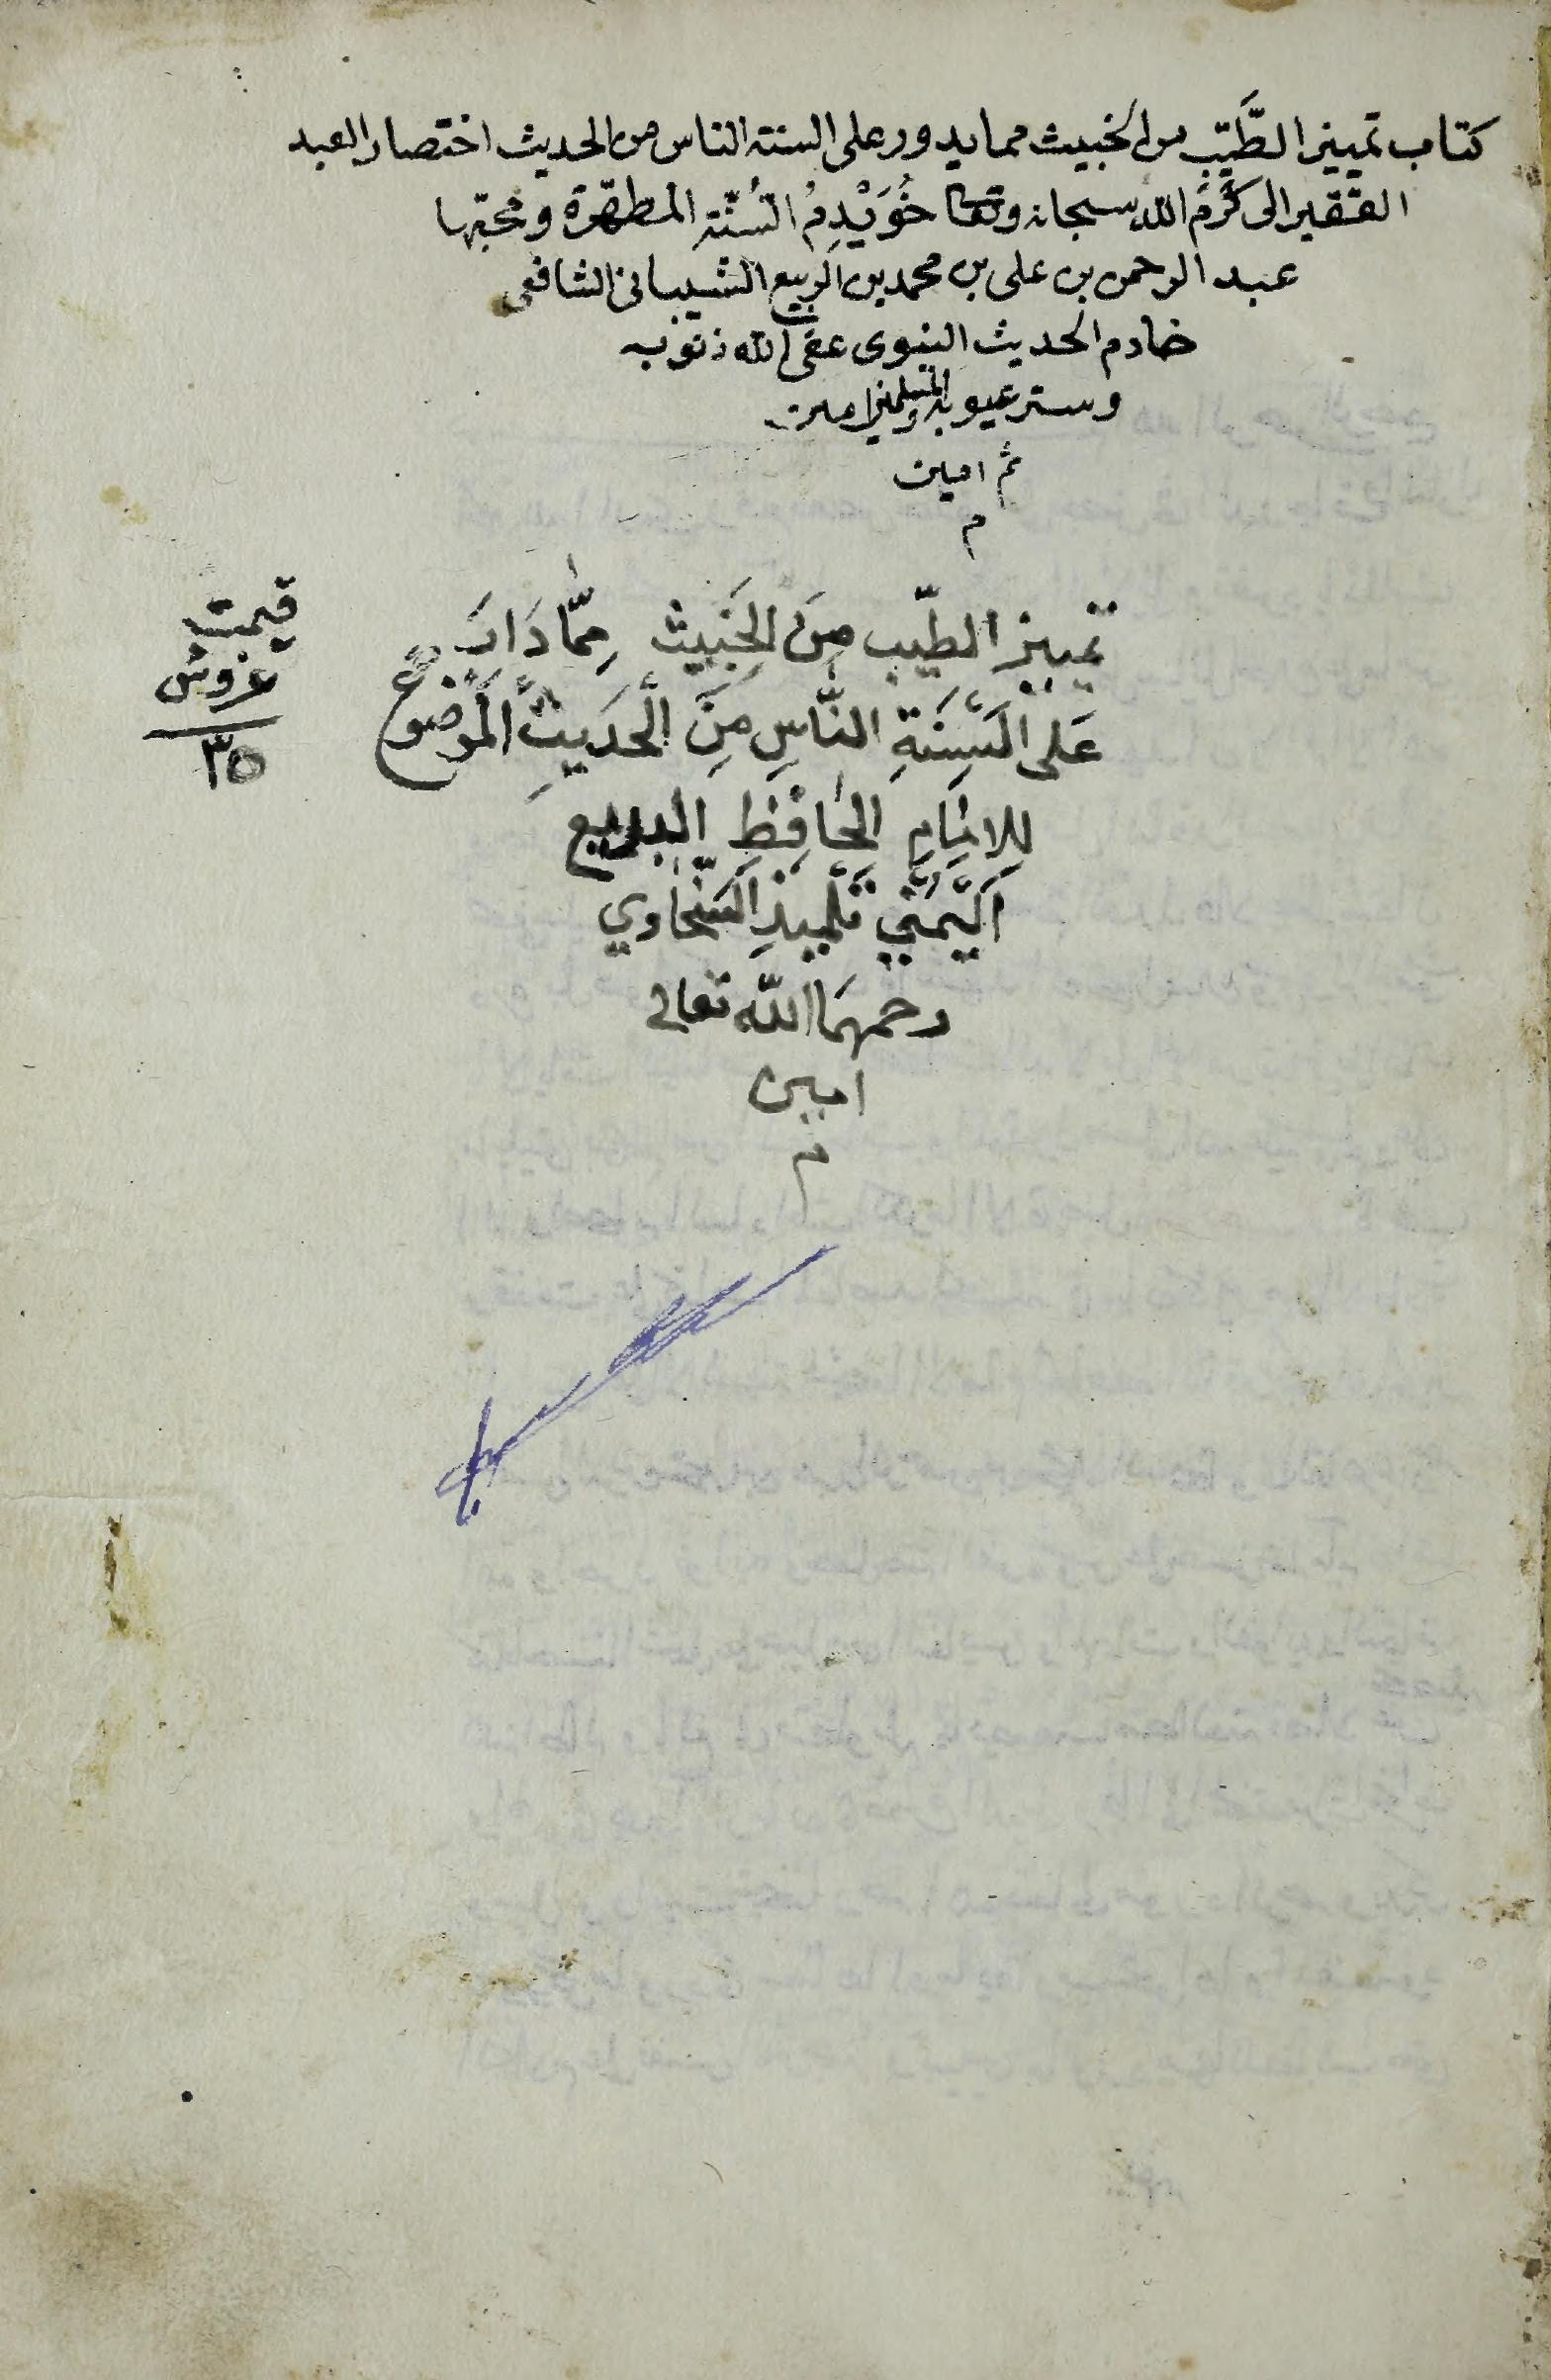 كتاب تمييز الطَّيِّب من الخبيث مما يدور على السنة الناس من الحديث اختصار العبد
الفقير الى كَرَم الله سبحانه وتعا خُوَيْدِمُ السُنّة المطهّرة ومحبّها
عبد الرحمن بن على بن محمد بن الربيع الشيبانى الشافعى
خادم الحديث النبوى عفى الله ذنوبه
وستر عيوبه والمسلمين امين
ثم امين
م
تمييز الطيّب مِنَ الخَبِيثِ مِمَّا دَارَ
عَلى اَلْسِنَةِ النَّاسِ مِنَ الْحَدِيثِ الْمَوْضوُعِ
لِلاِمَامِ الحَافِظِ البديع
اَلْيَمَنِي تلْمِيذِ السَّخَاوي
رحمهمَا الله تعالى
امين
م
قيمت
غروش
٣٥